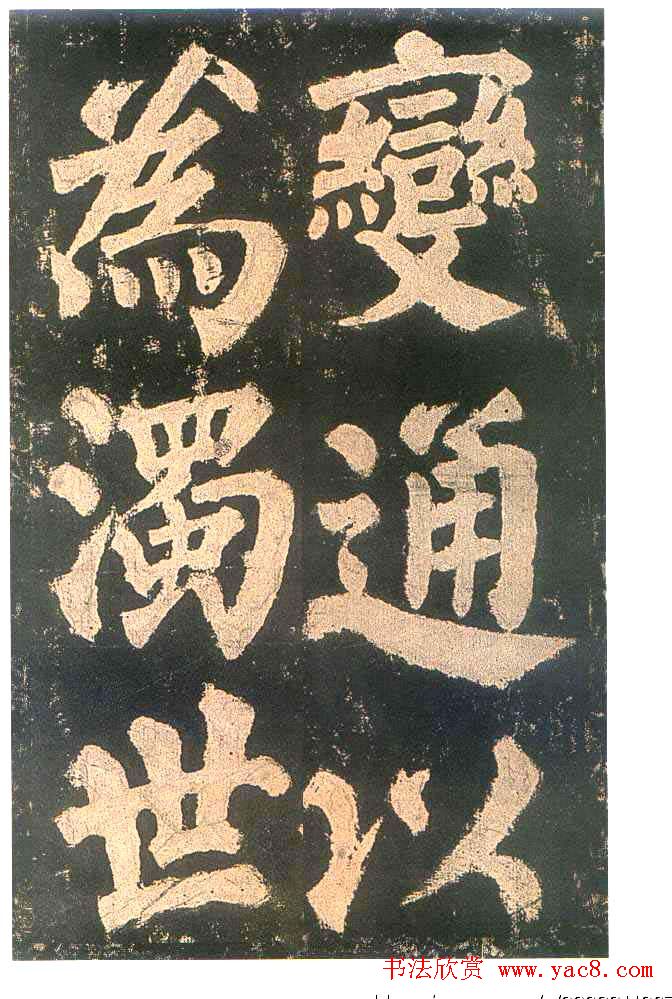 變通以
為濁世
书法欣赏 www.yac8.com